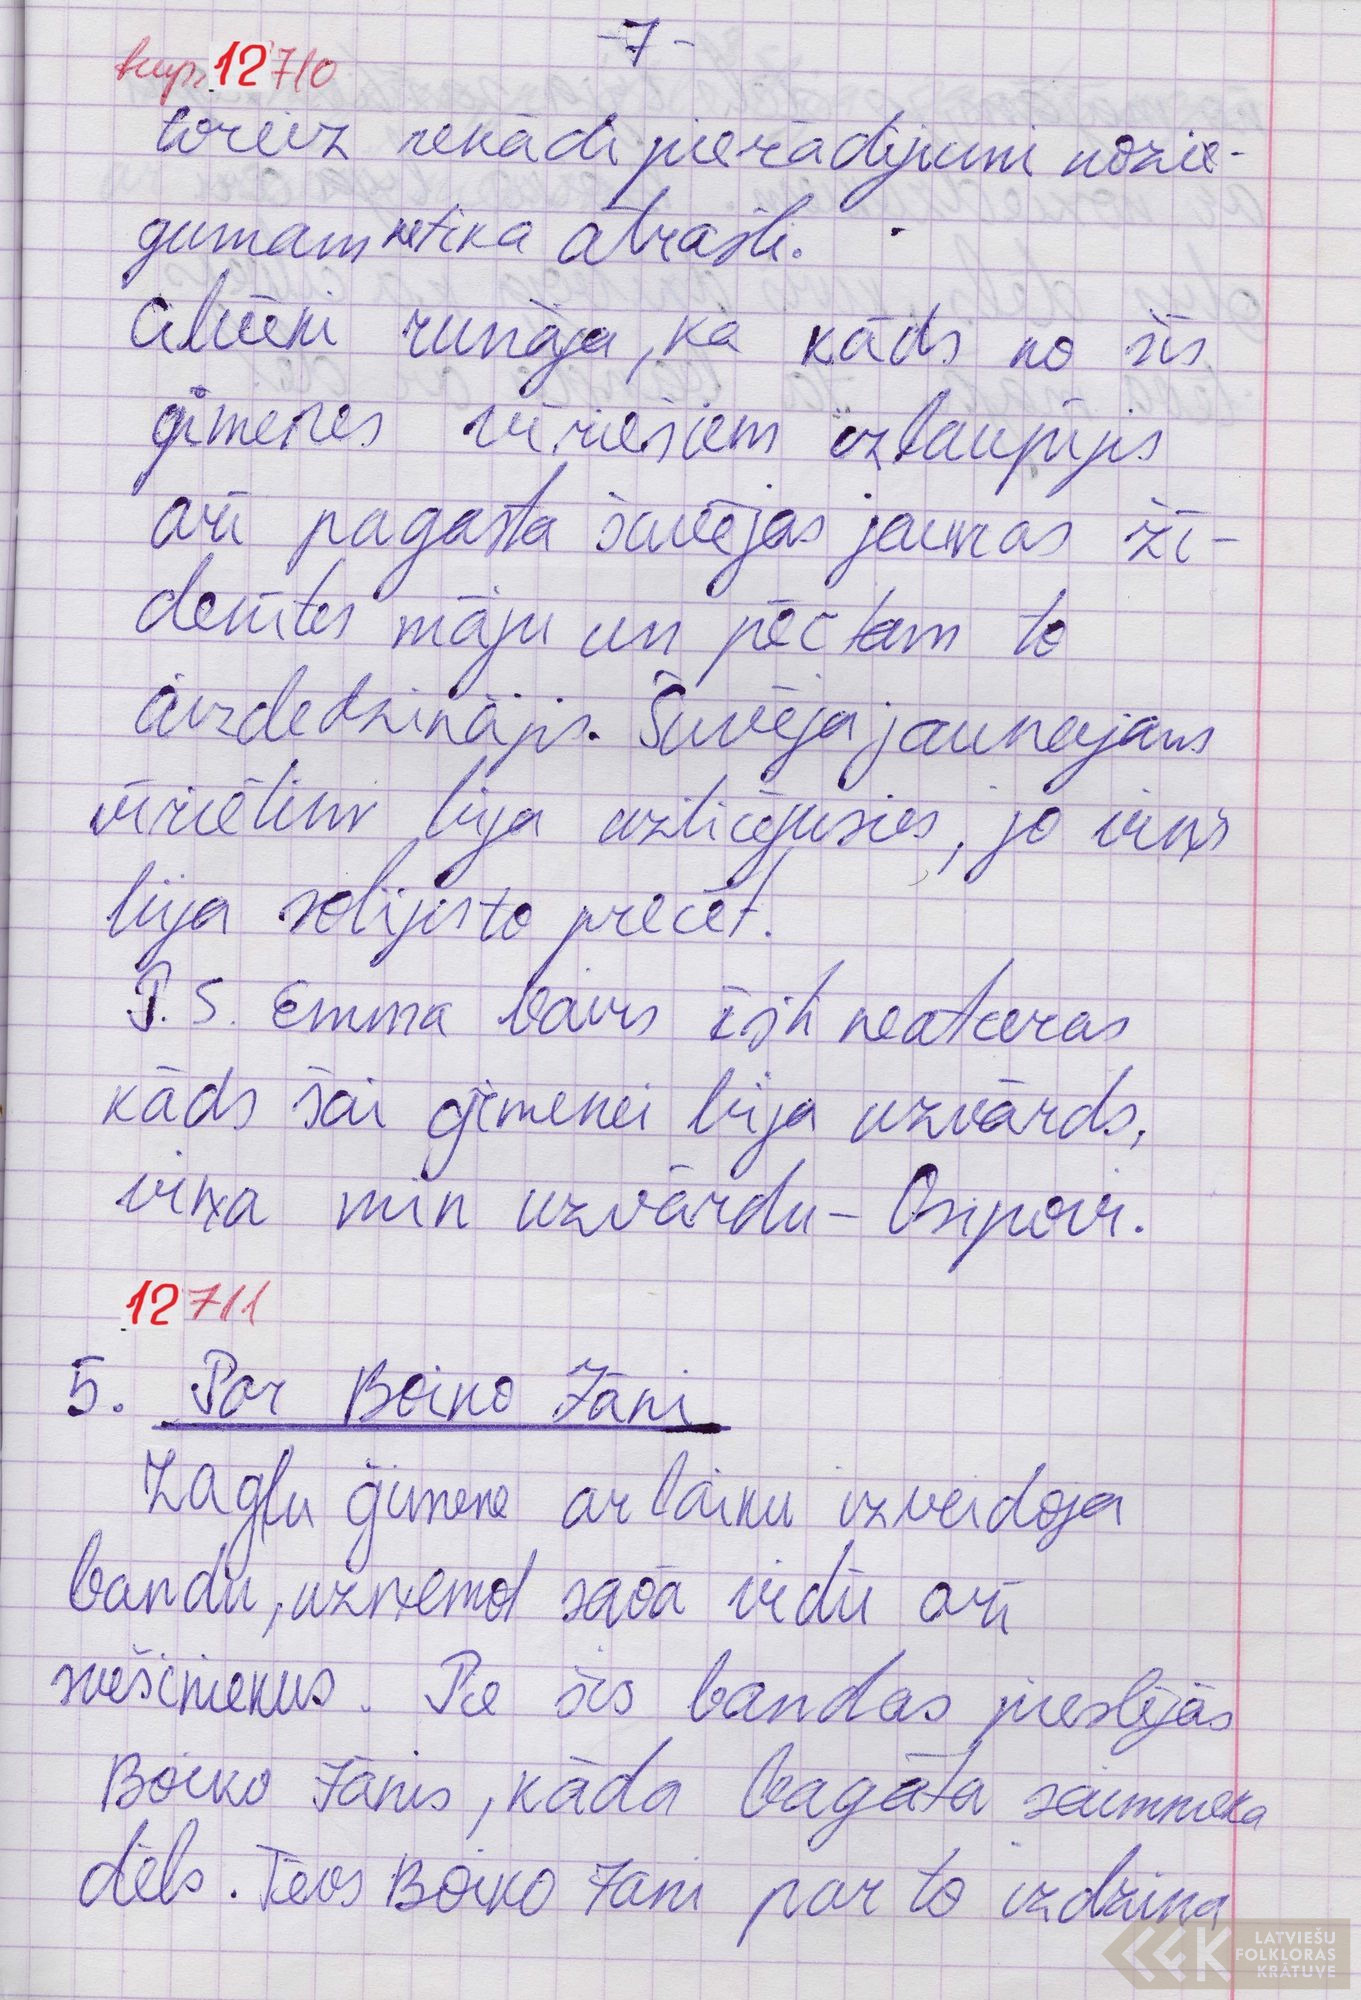 -7-
turp. 12710
toreiz nekādi pierādījumi nozie-
gumam netika atrasti.
Cilvēki runāja, ka kāds no šīs
ģimenes vīriešiem izlaupījis
arī pagasta šuvējas jaunas žī-
denītes māju un pēc tam to
aizdedzinājis. Šuvēja jaunajam
vīrietim bija uzticējusies, jo viņš
bija solījis to precēt.
P.S. Emma vairs īsti neatceras
kāds šai ģimenei bija uzvārds,
viņa min uzvārdu - Osipovi.
12711
5. Par Boiko Jāni
Zagļu ģimene ar laiku izveidoja
bandu, uzņemot savā vidū arī
svešiniekus. Pie šīs bandas pieslējās
Boiko Jānis, kāda bagāta saimnieka
dēls. Tēvs Boiko Jāni par to izdzina
LATVIEŠU
FOLKLORAS
KRĀTUVE